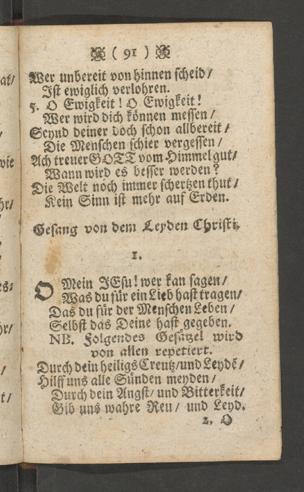 ( 91 )
Wer unbereit von hinnen scheid/
Ist ewiglich verlohren.
5. O Ewigkeit! O Ewigkeit!
Wer wird dich können messen/
Seynd deiner doch schon allbereit/
Die Menschen schier vergessen/
Ach treuer GOTT vom Himmel gut/
Wann wird es besser werden?
Die Welt noch immer schertzen thut/
Kein Sinn ist mehr auf Erden.
Gesang von dem Leyden Christi.
1.
O Mein JEsu! wer kan sagen/
Was du für ein Lieb hast tragen/
Das du für der Menschen Leben/
Selbst das Deine hast gegeben.
NB. Folgendes Gesätzel wird
von allen repetiert.
Durch dein heiligs Creutz/und Leydē/
Hilff uns alle Sünden meyden/
Durch dein Angst/ und Bitterkeit/
Gib uns wahre Reu/ und Leyd.
2. O